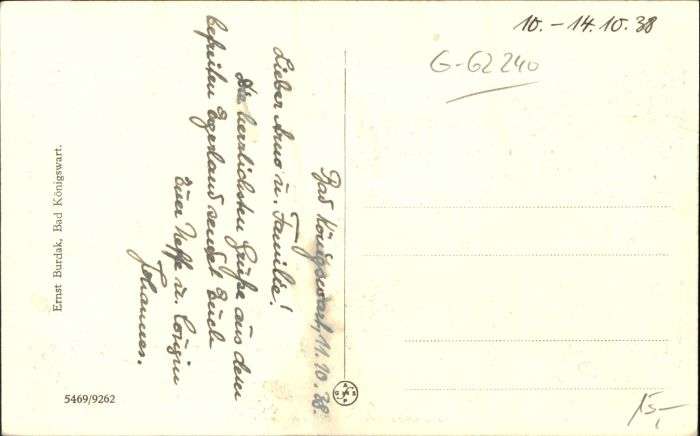 10. – 14. 10. 38
G-62240
Bad Königswart, 11. 10. 38.
Lieber Arno u. Familie!
Die herzlichsten Grüße aus dem
befreiten Egerland sendet Euch
Euer Neffe u. Cousin
Johannes.
Ernst Burdak, Bad Königswart.
5469/9262
15,-